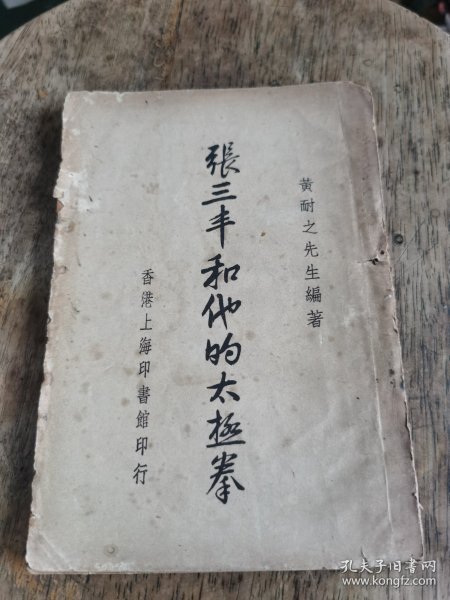 黄耐之先生編著
張三丰和他的太極拳
香港上海印書館印行
孔夫子旧书网
www.kongfz.com